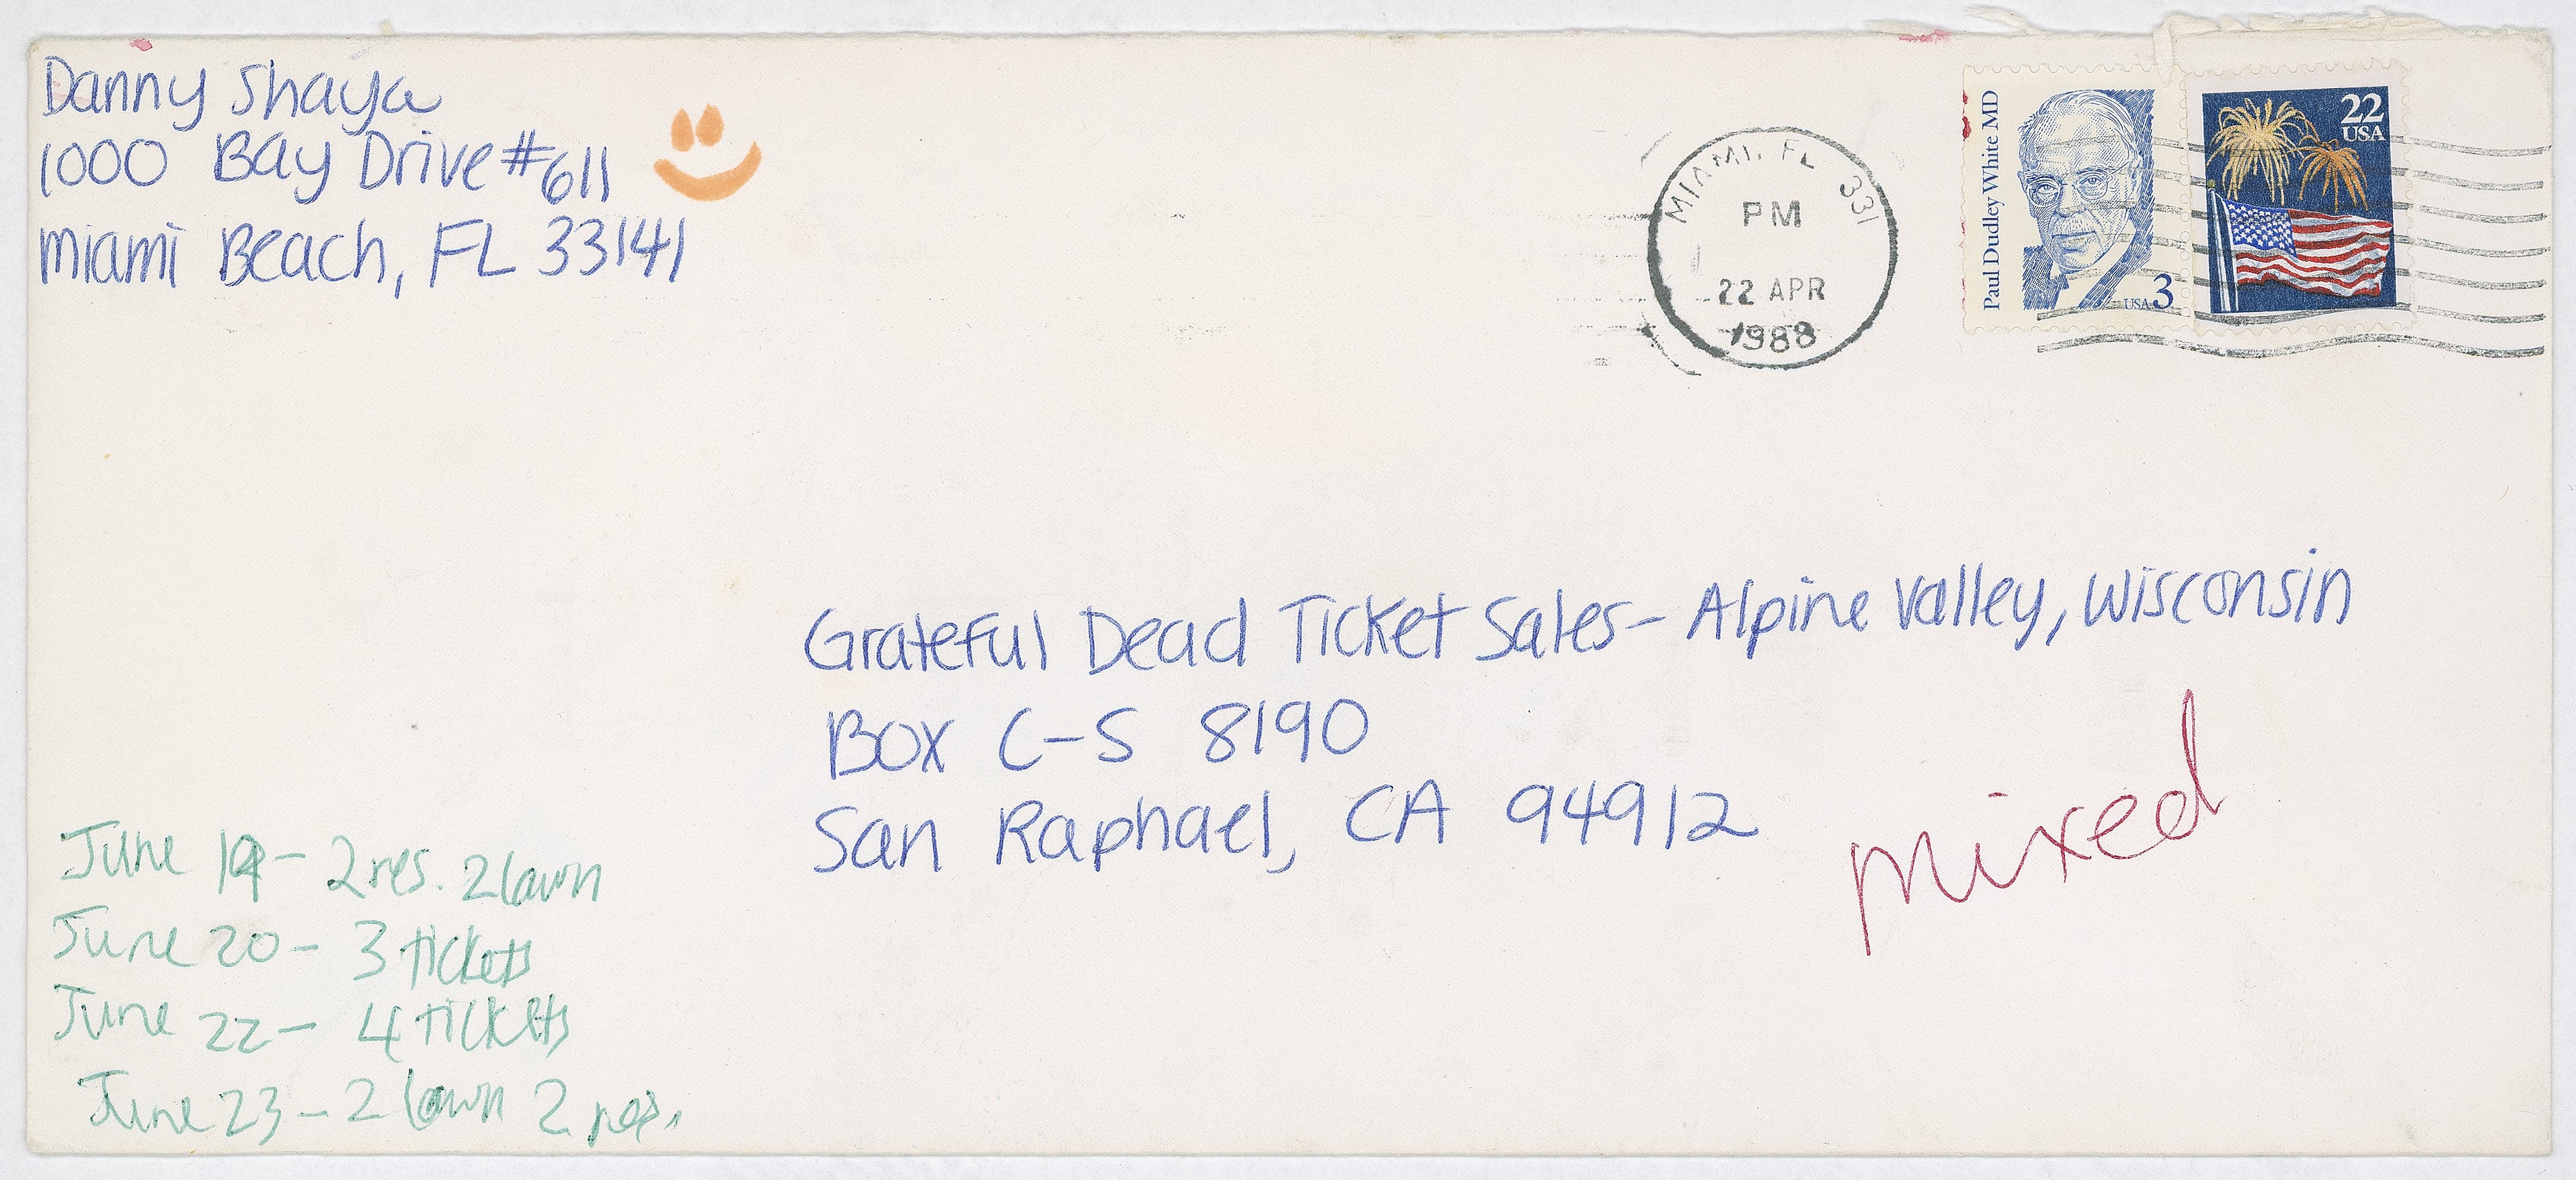 Danny Shaya
1000 Bay Drive #611
Miami Beach, FL 33141
MIAMI, FL 331
PM
22 APR
1988
Paul Dudley White MD
USA 3
22
USA
Grateful Dead Ticket Sales - Alpine Valley, Wisconsin
BOX C-S 8190
San Raphael, CA 94912
mixed
June 19 - 2 res. 2 lawn
June 20 - 3 tickets
June 22 - 4 tickets
June 23 - 2 lawn 2 res.